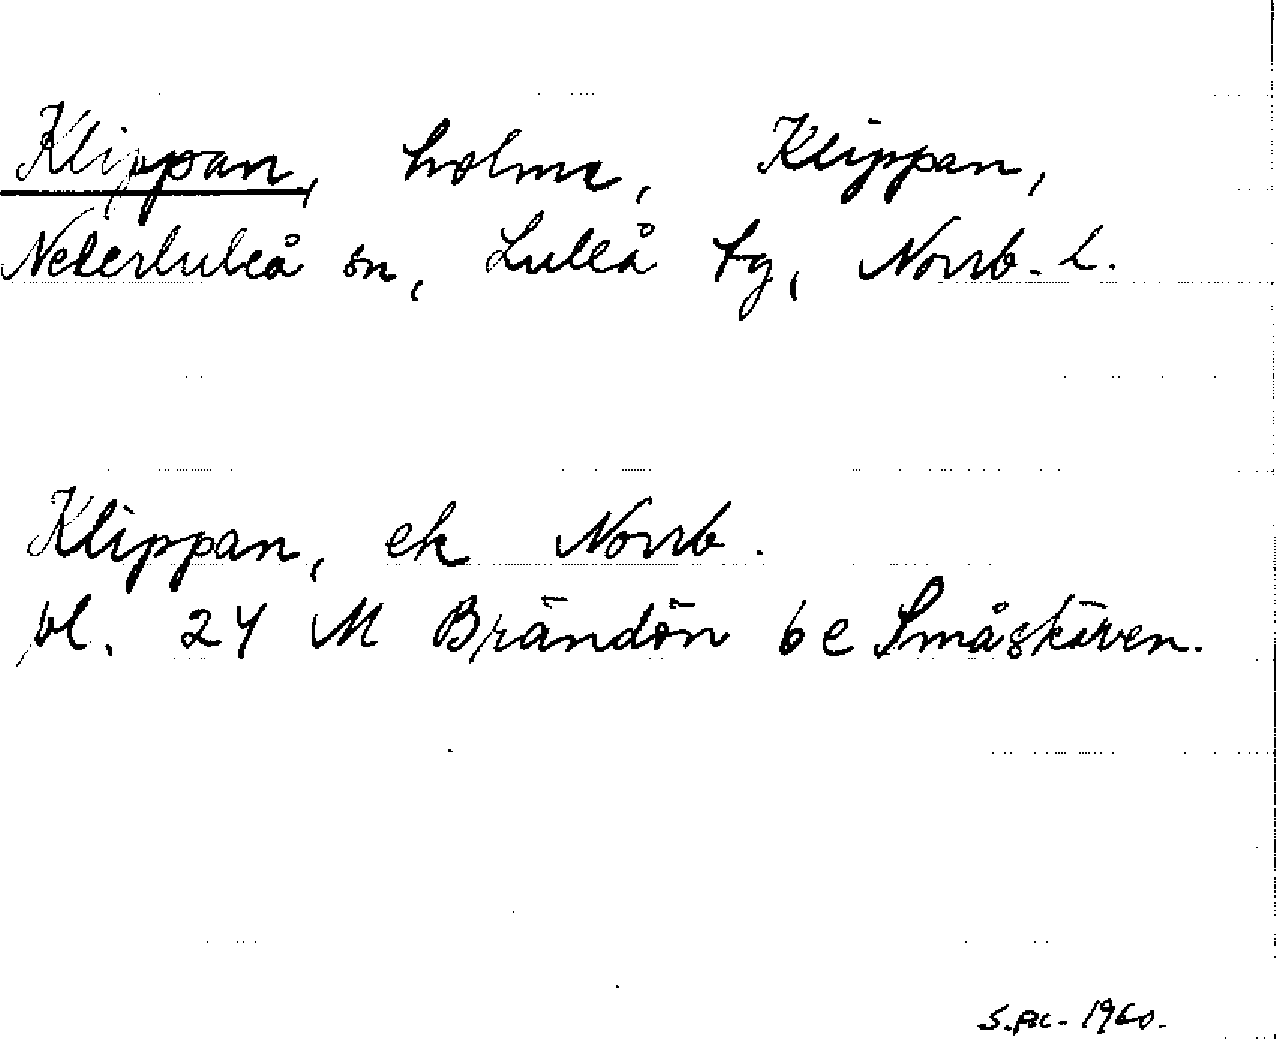 Klippan, holme, Klippan,
Nederluleå sn, Luleå tg, Norrb. L.
Klippan, ek Norrb.
bl. 24 M Brändön 6 e Småskären.
1960.